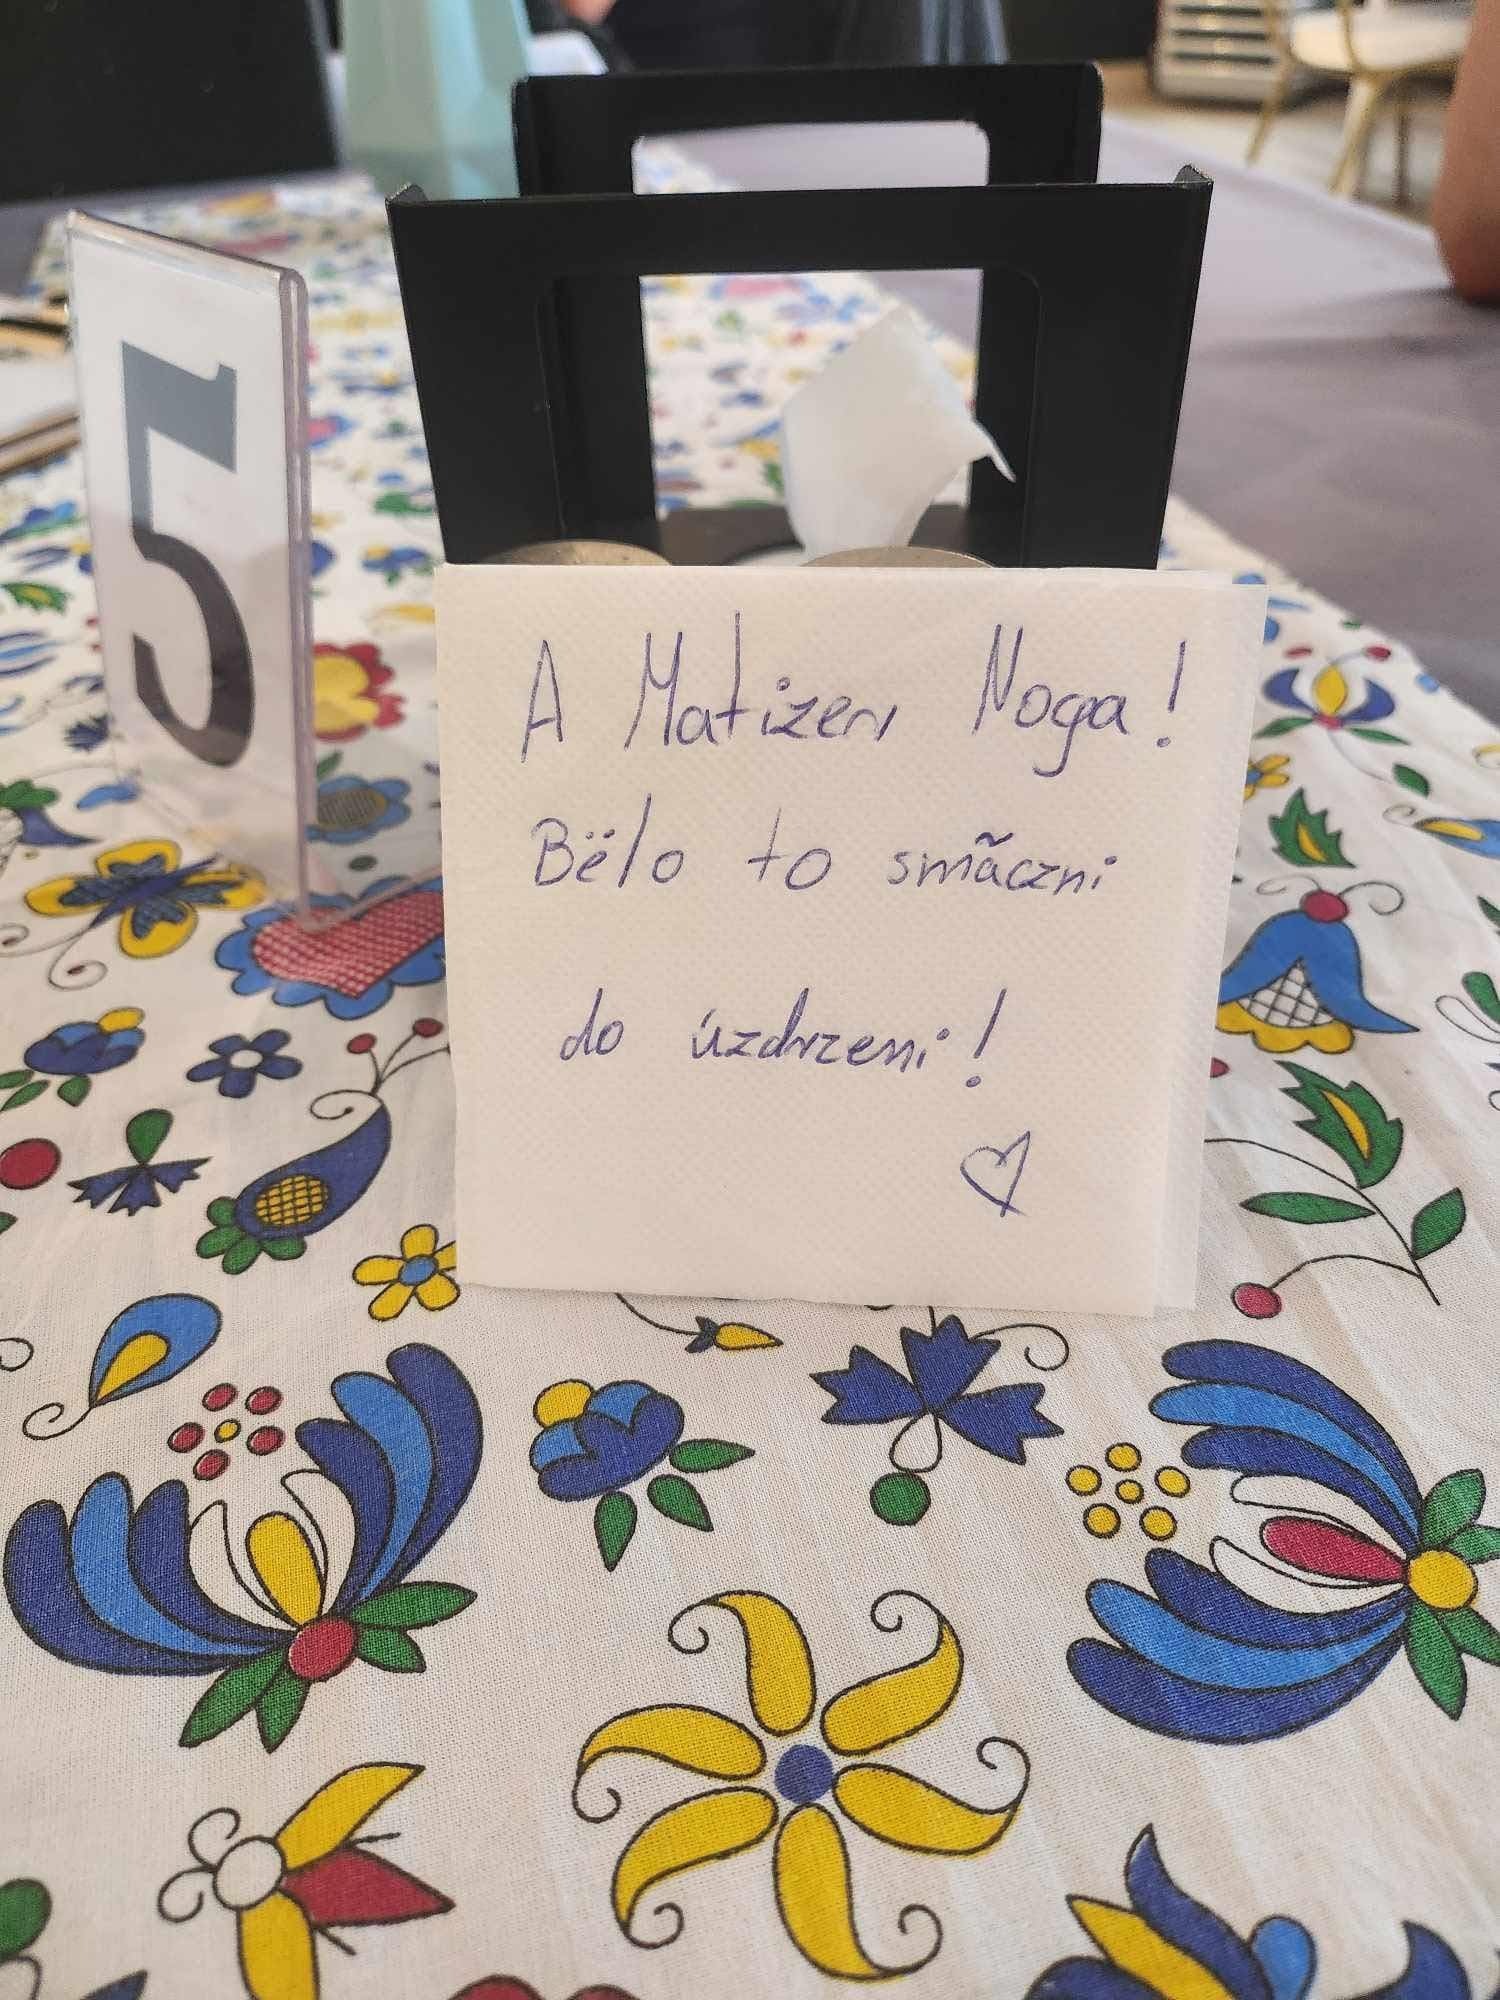 5
A Matizen Noga!
Bëlo to smãczni
do úzdrzeni!